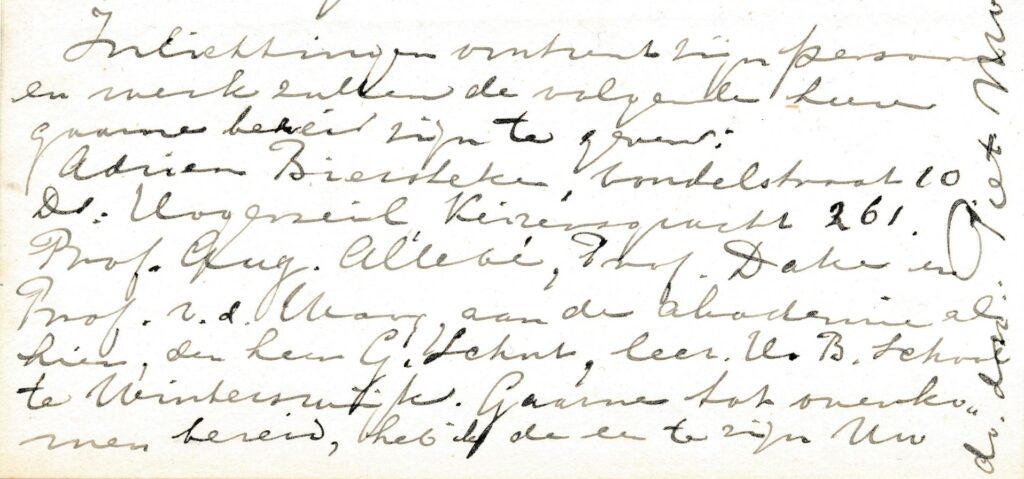 Inlichtingen omtrent zijn persoon
en werk zullen de volgende heeren
gaarne bereid zijn te geven:
Adrien Biersteker, Vondelstraat 10
Dr. Hogerzeil Keizersgracht 261.
Prof. Aug. Allebé, Prof. Dake en
Prof. v.d. Waay, aan de akademie al-
hier, den heer G. Schut, leer. H. B. School
te Winterswijk. Gaarne tot overko„
men bereid, heb ik de eer te zijn Uw
dv. dr. Piet